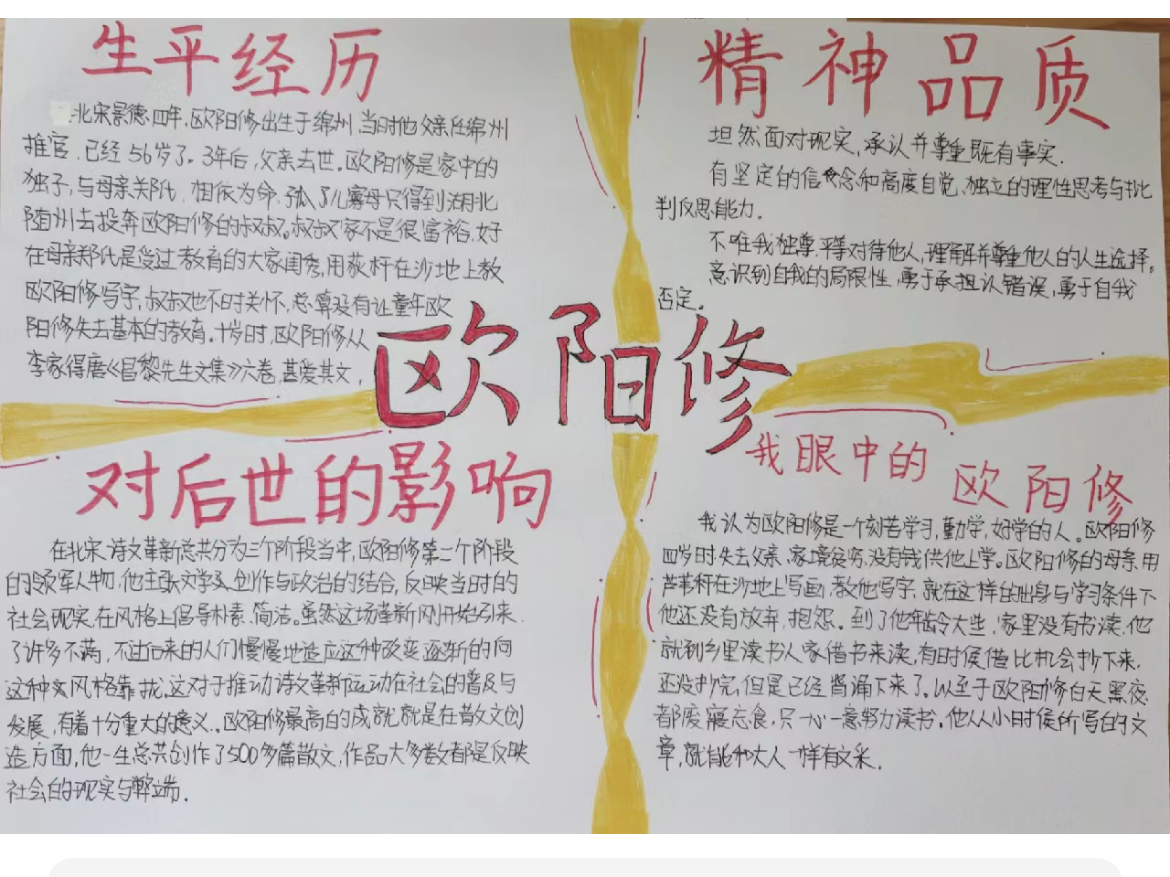 生平经历
北宋景德四年,欧阳修出生于绵州,当时他父亲任绵州
推官,已经56岁了。3年后,父亲去世。欧阳修是家中的
独子,与母亲郑氏,相依为命,孤儿寡母只得到湖北
随州去投奔欧阳修的叔叔。叔叔家不是很富裕,好
在母亲郑氏是受过教育的大家闺秀,用荻杆在沙地上教
欧阳修写字,叔叔也不时关怀,总算没有让童年欧
阳修失去基本的教育。十岁时,欧阳修从
李家得唐《昌黎先生文集》六卷,甚爱其文,
精神品质
坦然面对现实,承认并尊重既有事实.
有坚定的信念和高度自觉、独立的理性思考与批
判反思能力.
不唯我独尊,平等对待他人,理解并尊重他人的人生选择。
意识到自我的局限性,勇于承担认错误,勇于自我
否定.
欧阳修
对后世的影响
在北宋诗文革新总共分为三个阶段当中,欧阳修第二个阶段
的领军人物,他主张文学及创作与政治的结合,反映当时的
社会现实,在风格上倡导朴素、简洁。虽然这场革新刚开始引来
了许多不满,不过后来的人们慢慢地适应这种改变,逐渐的向
这种文风格靠拢,这对于推动诗文革新运动在社会的普及与
发展,有着十分重大的意义.欧阳修最高的成就,就是在散文创
造方面,他一生总共创作了500多篇散文,作品大多数都是反映
社会的现实与弊端.
我眼中的欧阳修
我认为欧阳修是一个刻苦学习,勤学,好学的人。欧阳修
四岁时失去父亲,家境贫穷,没有钱供他上学。欧阳修的母亲用
芦苇杆在沙地上写画,教他写字,就在这样的出身与学习条件下
他还没有放弃,抱怨.到了他年龄大些,家里没有书读,他
就到乡里读书人家借书来读,有时侯借此机会抄下来,
还没抄完,但是已经背诵下来了.以至于欧阳修白天黑夜
都废寝忘食,只一心一意努力读书.他从小时侯所写的文
章,就能和大人一样有文采.